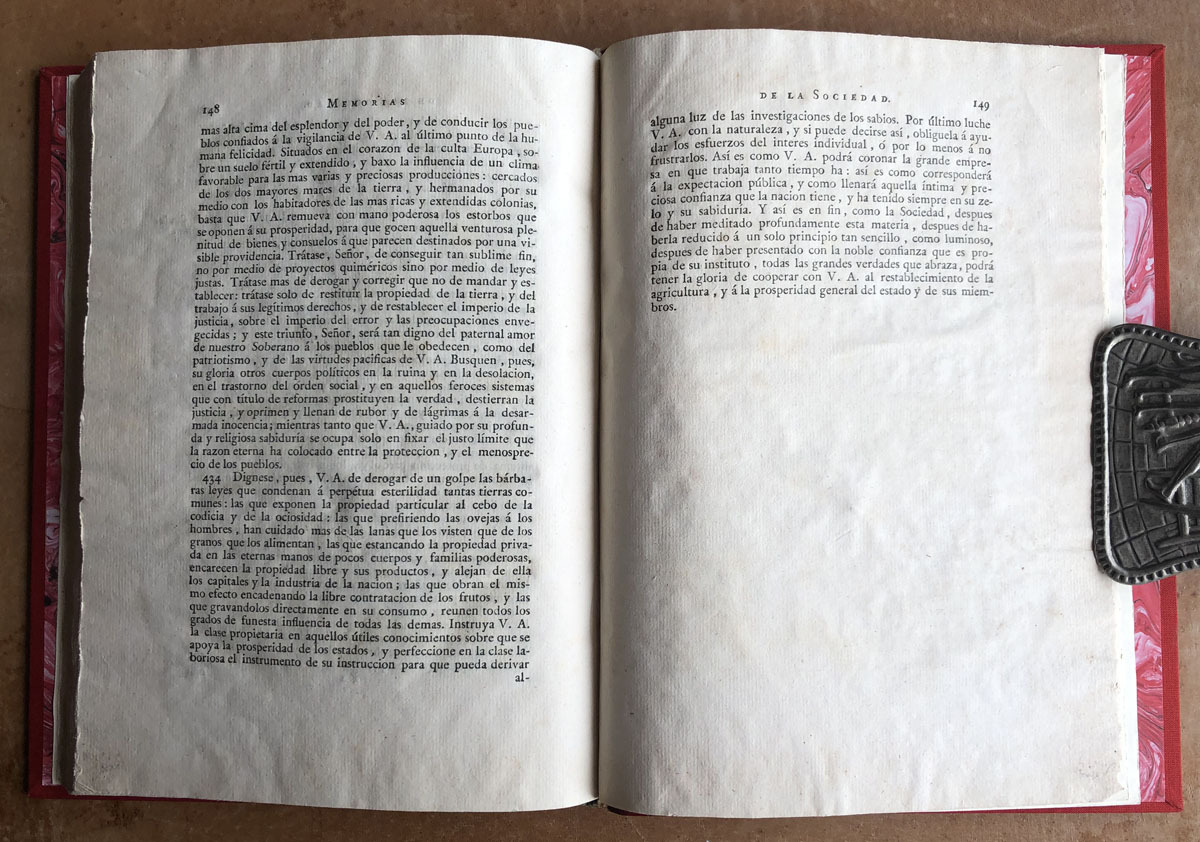 148 MEMORIAS
mas alta cima del esplendor y del poder, y de conducir los pue-
blos confiados á la vigilancia de V. A. al último punto de la hu-
mana felicidad. Situados en el corazon de la culta Europa, so-
bre un suelo fértil y extendido, y baxo la influencia de un clima
favorable para las mas varias y preciosas producciones: cercados
de los dos mayores mares de la tierra, y hermanados por su
medio con los habitadores de las mas ricas y extendidas colonias,
basta que V. A. remueva con mano poderosa los estorbos que
se oponen á su prosperidad, para que gocen aquella venturosa ple-
nitud de bienes y consuelos á que parecen destinados por una vi-
sible providencia. Trátase, Señor, de conseguir tan sublime fin,
no por medio de proyectos quiméricos sino por medio de leyes
justas. Trátase mas de derogar y corregir que no de mandar y es-
tablecer: trátase solo de restituir la propiedad de la tierra, y del
trabajo á sus legítimos derechos, y de restablecer el imperio de la
justicia, sobre el imperio del error y las preocupaciones enve-
gecidas; y este triunfo, Señor, será tan digno del paternal amor
de nuestro Soberano á los pueblos que le obedecen, como del
patriotismo, y de las virtudes pacíficas de V. A. Busquen, pues,
su gloria otros cuerpos políticos en la ruina y en la desolacion,
en el trastorno del orden social, y en aquellos feroces sistemas
que con título de reformas prostituyen la verdad, destierran la
justicia, y oprimen y llenan de rubor y de lágrimas á la desar-
mada inocencia; mientras tanto que V. A., guiado por su profun-
da y religiosa sabiduría se ocupa solo en fixar el justo límite que
la razon eterna ha colocado entre la proteccion, y el menospre-
cio de los pueblos.
434 Dignese, pues, V. A. de derogar de un golpe las bárba-
ras leyes que condenan á perpétua esterilidad tantas tierras co-
munes: las que exponen la propiedad particular al cebo de la
codicia y de la ociosidad: las que prefiriendo las ovejas á los
hombres, han cuidado mas de las lanas que los visten que de los
granos que los alimentan, las que estancando la propiedad priva-
da en las eternas manos de pocos cuerpos y familias poderosas,
encarecen la propiedad libre y sus productos, y alejan de ella
los capitales y la industria de la nacion; las que obran el mis-
mo efecto encadenando la libre contratacion de los frutos, y las
que gravandolos directamente en su consumo, reunen todos los
grados de funesta influencia de todas las demas. Instruya V. A.
la clase propietaria en aquellos útiles conocimientos sobre que se
apoya la prosperidad de los estados, y perfeccione en la clase la-
boriosa el instrumento de su instruccion para que pueda derivar
al-
DE LA SOCIEDAD. 149
alguna luz de las investigaciones de los sabios. Por último luche
V. A. con la naturaleza, y si puede decirse así, obliguela á ayu-
dar los esfuerzos del interes individual, ó por lo menos á no
frustrarlos. Así es como V. A. podrá coronar la grande empre-
sa en que trabaja tanto tiempo ha: así es como corresponderá
á la expectacion pública, y como llenará aquella íntima y pre-
ciosa confianza que la nacion tiene, y ha tenido siempre en su ze-
lo y su sabiduría. Y así es en fin, como la Sociedad, despues
de haber meditado profundamente esta materia, despues de ha-
berla reducido á un solo principio tan sencillo, como luminoso,
despues de haber presentado con la noble confianza que es pro-
pia de su instituto, todas las grandes verdades que abraza, podrá
tener la gloria de cooperar con V. A. al restablecimiento de la
agricultura, y á la prosperidad general del estado y de sus miem-
bros.